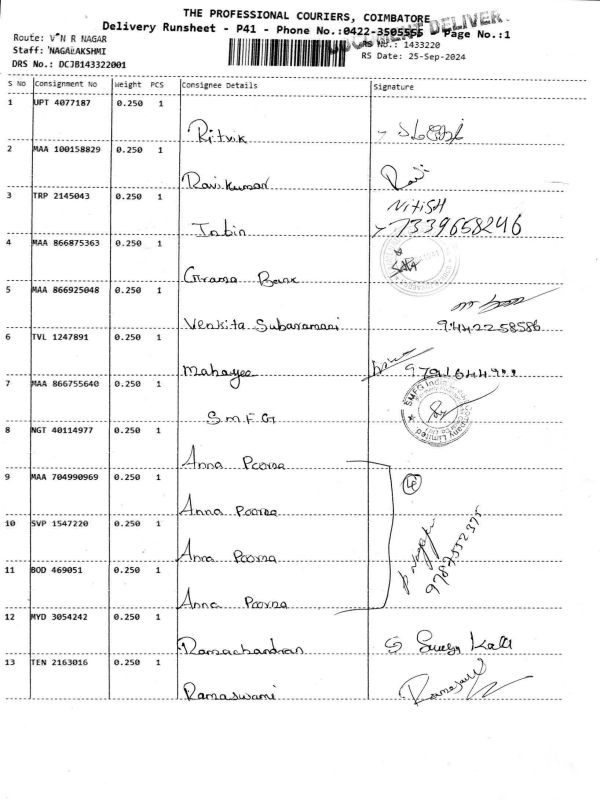 THE PROFESSIONAL COURIERS, COIMBATORE
DOCUMENT DELIVER
Delivery Runsheet - P41 - Phone No.:0422-3505555 Page No.:1
Route: V N R NAGAR
RS No.: 1433220
Staff: NAGALAKSHMI
RS Date: 25-Sep-2024
DRS No.: DCJB143322001
S No Consignment No Weight PCS Consignee Details Signature
1 UPT 4077187 0.250 1
Ritvik
2 MAA 100158829 0.250 1
Ravikumar Ravi
3 TRP 2145043 0.250 1
NITISH
Jobin 7339658246
4 MAA 866875363 0.250 1
Grama Bank
5 MAA 866925048 0.250 1
Venkita Subaramani 9442258586
6 TVL 1247891 0.250 1
Mahayee
7 MAA 866755640 0.250 1
SMFG India
Company Limited
S.M.F.G
8 NGT 40114977 0.250 1
Anna Poorna
9 MAA 704990969 0.250 1
4
Anna Poorna
10 SVP 1547220 0.250 1
Anna Poorna
11 BOD 469051 0.250 1
Anna Poorna
12 MYD 3054242 0.250 1
Ramachandran
13 TEN 2163016 0.250 1
Ramaswami